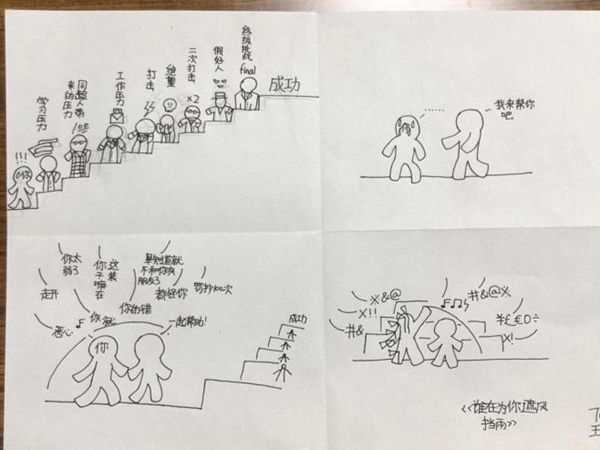 终极挑战
final
成功
假好人
二次打击
×2
绝望
打击
工作压力
同龄人带
来的压力
100
学习压力
!!!
你
……
我来帮你
吧
你太
弱了
你这
干嘛在
早知道就
不和你做
朋友了
走开
都怪你
罚抄100次
你的错
恶心
你
一起帮助!
你
成功
×&@
×!!
#&
#&@×
¥££0÷
×!
<<谁在为你遮风
挡雨>>
王